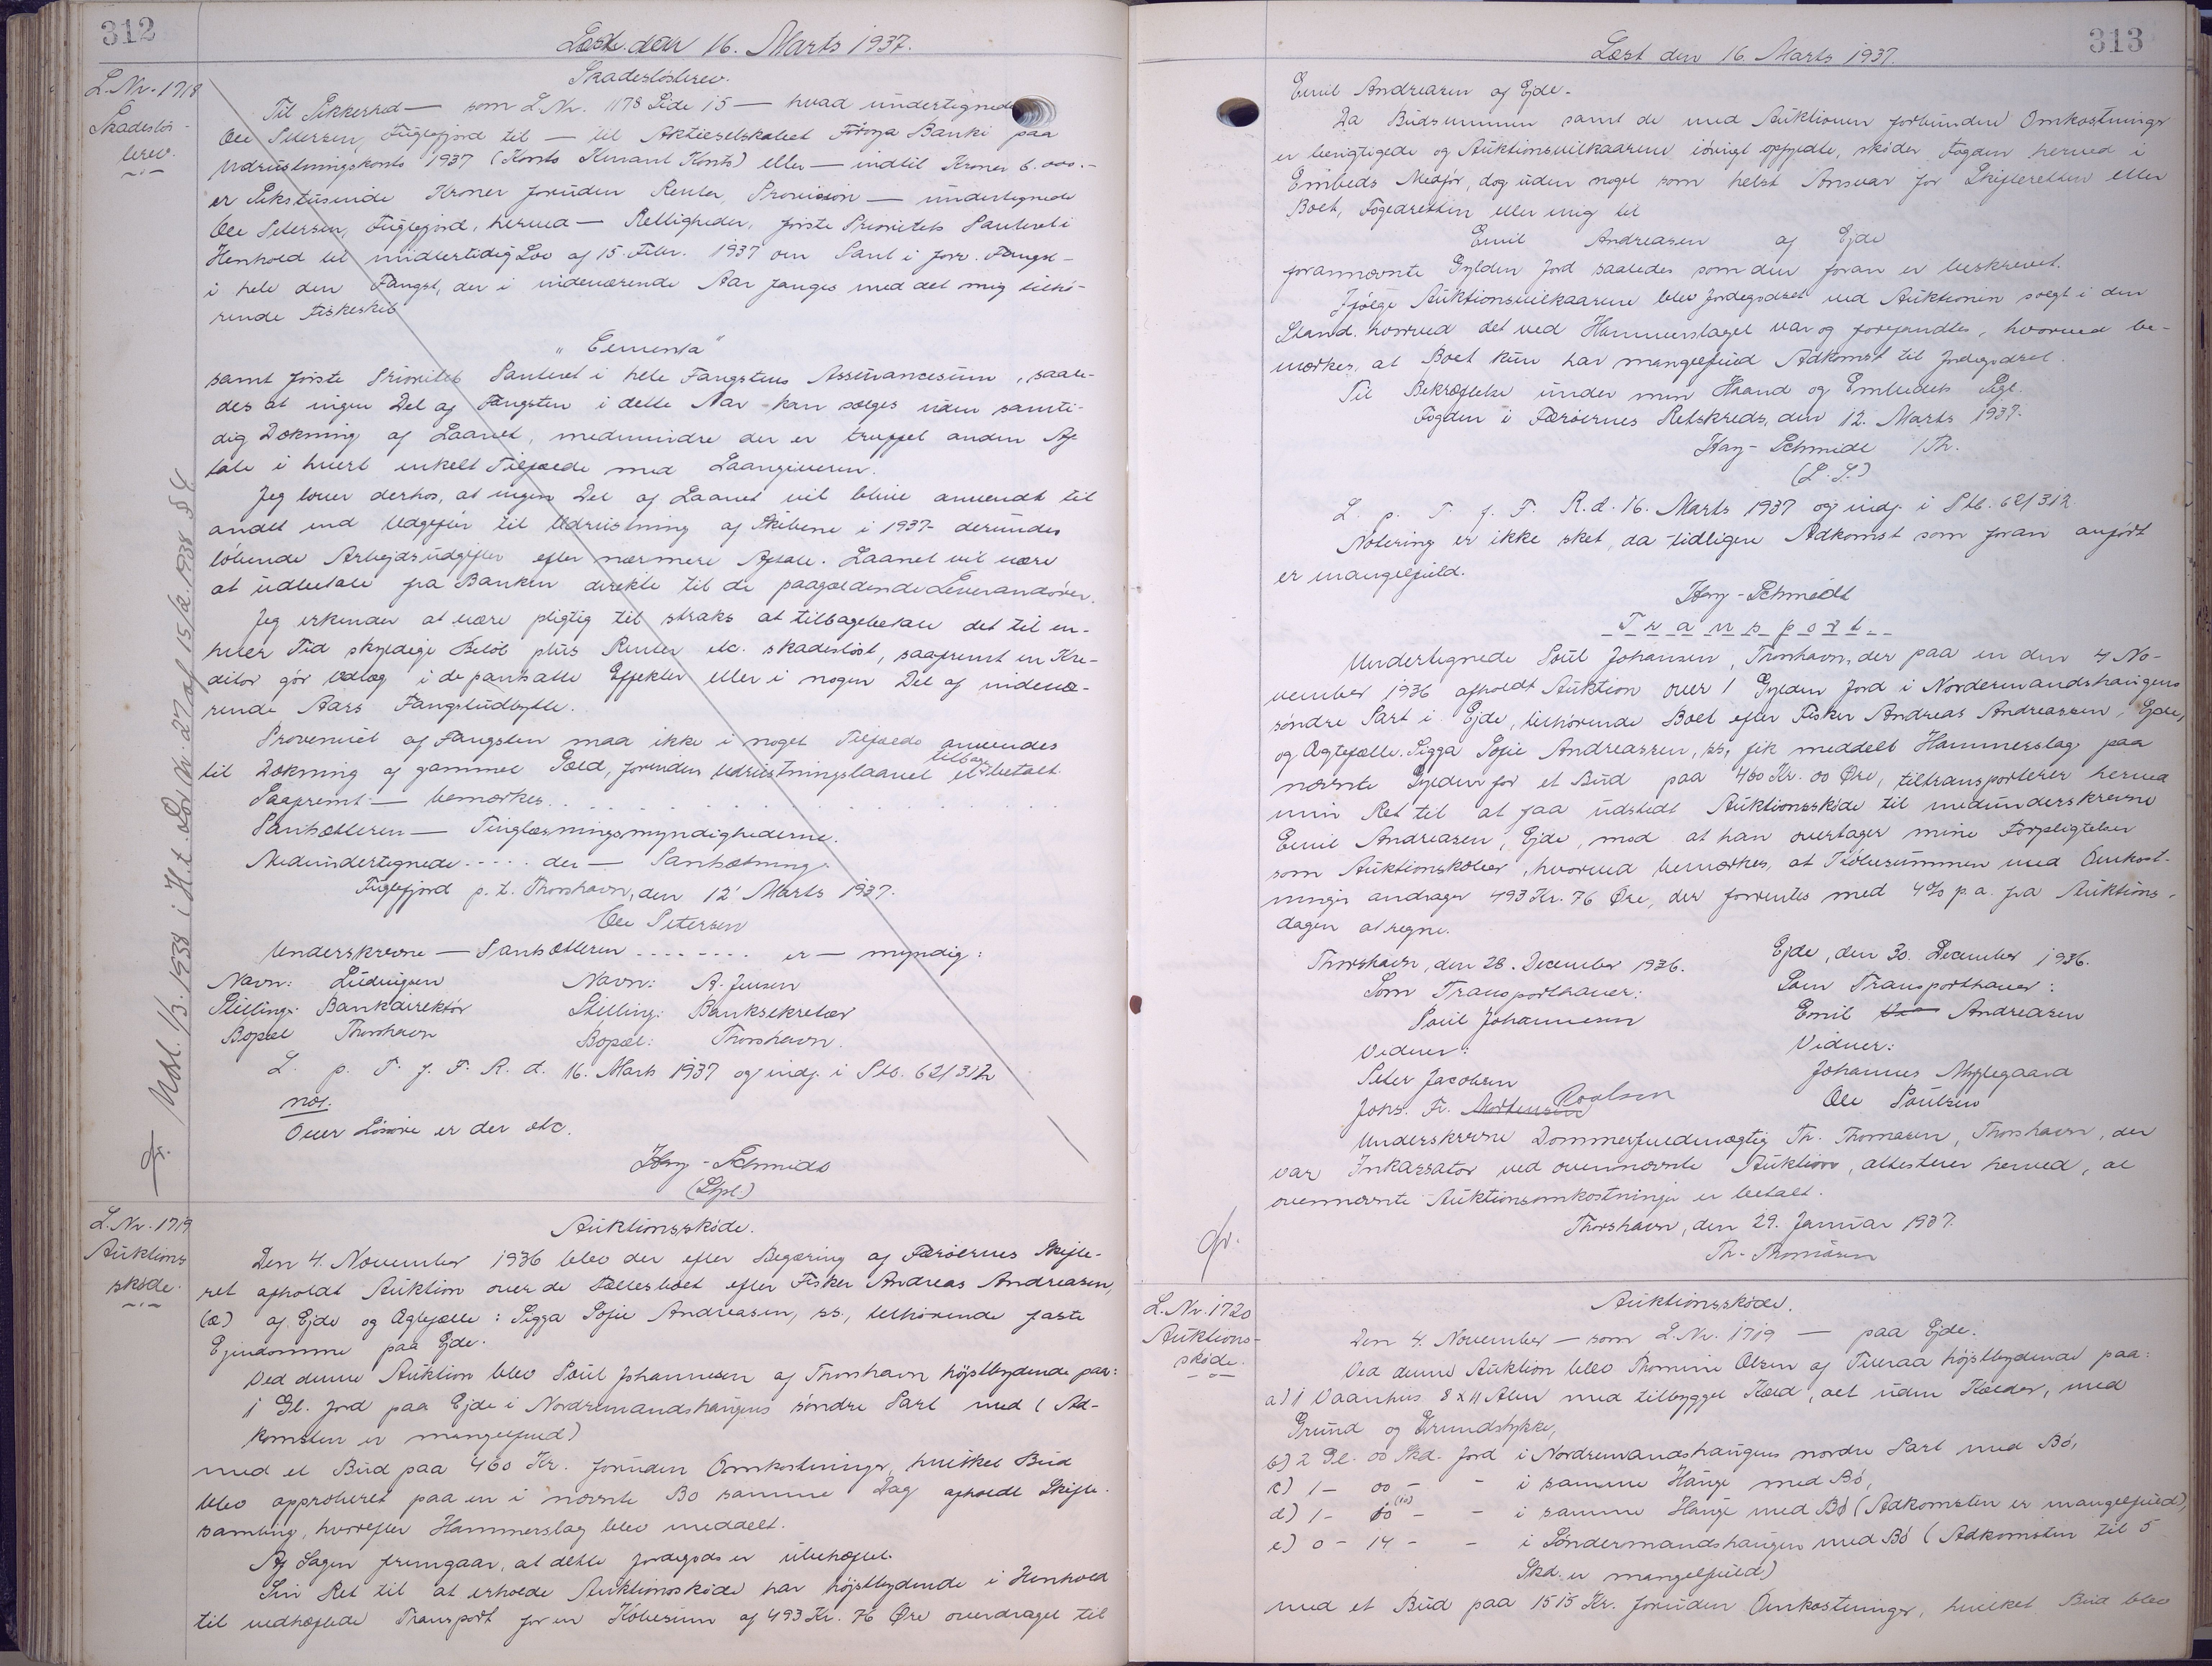 312
Læst den 16. Marts 1937.
L. Nr. 1718
Skadesløs-
brev.
Skadesløsbrev.
Til Sikkerhed — som L.Nr. 1178 Side 15 — hvad undertegnede
Ole Petersen, Fuglefjord til — til Aktieselskabet Føroya Banki paa
Udrustningskonto 1937 (Konto Kurant Konto) eller — indtil Kroner 6.000.-
er Sekstusinde Kroner foruden Renter, Provision — undertegnede
Ole Petersen, Fuglefjord, herved — Rettigheder, første Prioritets Panteret i
Henhold til midlertidig Lov af 15. Febr. 1937 om Pant i forv. Fangst -
i hele den Fangst, der i indeværende Aar fanges med det mig tilhø-
rende Fiskeskib
samt første Prioritets Panteret i hele Fangstens Assurancesum, saale-
des at ingen Del af Fangsten i dette Aar kan sælges uden samti-
dig Dækning af Laanet, medmindre der er truffet anden Af
tale i hvert enkelt Tilfælde med Laangiveren.
Jeg lover derhos, at ingen Del af Laanet vil blive anvendt til
andet end Udgifter til Udrustning af Skibene i 1937 derundes
løbende Arbejdsudgifter efter nærmere Aftale. Laanet vil være
at udbetale fra Banken direkte til de paagældende Leverandører.
Jeg erkender at være pligtig til straks at tilbagebetale det til en-
hver Tid skyldige Beløb plus Renter etc. skadesløst, saafremt en Kre-
ditor gør Udlæg i de pantsatte Effekter eller i nogen Del af indevæ-
rende Aars Fangstudbytte.
Provenuet af Fangsten maa ikke i noget Tilfælde anvendes
til Dækning af gammel Gæld, forinden Udrustningslaanet er tilbagebetalt.
Saafremt — bemærkes. . . . . . . . . . . .
Pantsætteren — Tinglæsningsmyndighederne.
Medundertegnede . . . . . der — Pantsætning.
Fuglefjord p. t. Thorshavn, den 12' Marts 1937.
Ole Petersen
Underskrevne — Pantsætteren . . . . . . . . er — myndig:
Navn: Ludvigsen Navn: A. Jensen
Stilling: Bankdirektør Stilling: Banksekretær
Bopæl Thorshavn Bopæl: Thorshavn.
L. p. T. f. F. R. d. 16. Marts 1937 og indf. i Ptb. 62/312
not.
Over Løsøre er der etc.
Hay-Schmidt
(Stpl.)
Udsl. 1/3. 1938 i H. t. Lov Nr. 27 af 15/2. 1938 § 4
gr.
L. Nr. 1719
Auktions
skøde.
Auktionsskøde.
Den 4. November 1936 blev der efter Begæring af Færøernes Skifte-
ret afholdt Auktion over de Fællesboet efter Fisker Andreas Andreasen,
(æ) af Ejde og Ægtefælle: Sigga Sofie Andreasen, ss., tilhørende faste
Ejendomme paa Ejde.
Ved denne Auktion blev Poul Johannesen af Thorshavn højstbydende paa:
1 Gl. Jord paa Ejde i Nordremandshaugens søndre Part med (Ad-
komsten er mangelfuld)
med et Bud paa 460 Kr. foruden Omkostninger, hvilket Bud
blev approberet paa en i nævnte Bo samme Dag afholdt Skifte-
samling, hvorefter Hammerslag blev meddelt.
Af Sagen fremgaar, at dette Jordegods er ubehæftet.
Sin Ret til at erholde Auktionsskøde har højstbydende i Henhold
til vedhæftede Transport for en Købesum af 493 Kr. 76 Øre overdraget til
313
Læst den 16. Marts 1937.
Emil Andreasen af Ejde.
Da Budsummen samt de med Auktionen forbundne Omkostninger
er berigtigede og Auktionsvilkaarene iøvrigt opfyldte, skøder Fogden herved i
Embeds Medfør, dog uden noget som helst Ansvar for Skifteretten eller
Boet, Fogedretten eller mig til
Emil Andreasen af Ejde
forannævnte Gylden Jord saaledes som den foran er beskrevet.
Ifølge Auktionsvilkaarene blev Jordegodset ved Auktionen solgt i den
Stand, hvorved det ved Hammerslaget var og forefandtes, hvorved be-
mærkes, at Boet kun har mangelfuld Adkomst til Jordegodset.
Til Bekræftelse under min Haand og Embedets Segl.
Fogden i Færøernes Retskreds, den 12. Marts 1937.
Hay-Schmidt /Th.
(L. S.)
L. p. T. f. F. R. d. 16. Marts 1937 og indf. i Ptb. 62/312
Notering er ikke sket, da tidligere Adkomst som foran anført
er mangelfuld.
Hay-Schmidt
Transport.
Undertegnede Poul Johansen, Thorshavn, der paa en den 4 No-
vember 1936 afholdt Auktion over 1 Gylden Jord i Nordremandshaugens
søndre Part i Ejde, tilhørende Boet efter Fisker Andreas Andreassen, Ejde,
og Ægtefælle Sigga Sofie Andreassen, ss, fik meddelt Hammerslag paa
nævnte Gylden for et Bud paa 460 Kr. 00 Øre, tiltransporterer herved
min Ret til at faa udstedt Auktionsskøde til medunderskrevne
Emil Andreasen, Ejde, mod at han overtager mine Forpligtelser
som Auktionskøber, hvorved bemærkes, at Købesummen med Omkost-
ninger andrager 493 Kr. 76 Øre, der forrentes med 4% p.a. fra Auktions-
dagen at regne.
Thorshavn, den 28. December 1936. Ejde, den 30. December 1936.
Som Transporthaver: Som Transporthaver:
Poul Johannesen Emil Andreasen
Vidner: Vidner:
Peter Jacobsen Johannes Myllegaard
Johs. Fr. Mortensen Poulsen Ole Poulsen
Underskrevne Dommerfuldmægtig Th. Thomasen, Thorshavn, der
var Inkassator ved ovennævnte Auktion, attesterer herved, at
ovennævnte Auktionsomkostninger er betalt.
Thorshavn, den 29. Januar 1937.
Th. Thomasen
gr.
L. Nr. 1720
Auktions-
skøde.
Auktionsskøde.
Den 4. November — som L.Nr. 1719 — paa Ejde.
Ved denne Auktion blev Thomine Olsen af Tveraa højstbydende paa:
a) 1 Vaanhus 8 x 11 Alen med tilbygget Kæld, alt uden Kælder, med
Grund og Grundstykke,
b) 2 Gl. 00 Skd. Jord i Nordremandshaugens nordre Part med Bø,
c) 1 - 00 - - i samme Hauge med Bø,
d) 1 - 00 (10) - - i samme Hauge med Bø (Adkomsten er mangelfuld),
e) 0 - 14 - - i Søndermandshaugen med Bø (Adkomsten til 5
Skd. er mangelfuld)
med et Bud paa 1515 Kr. foruden Omkostninger, hvilket Bud blev